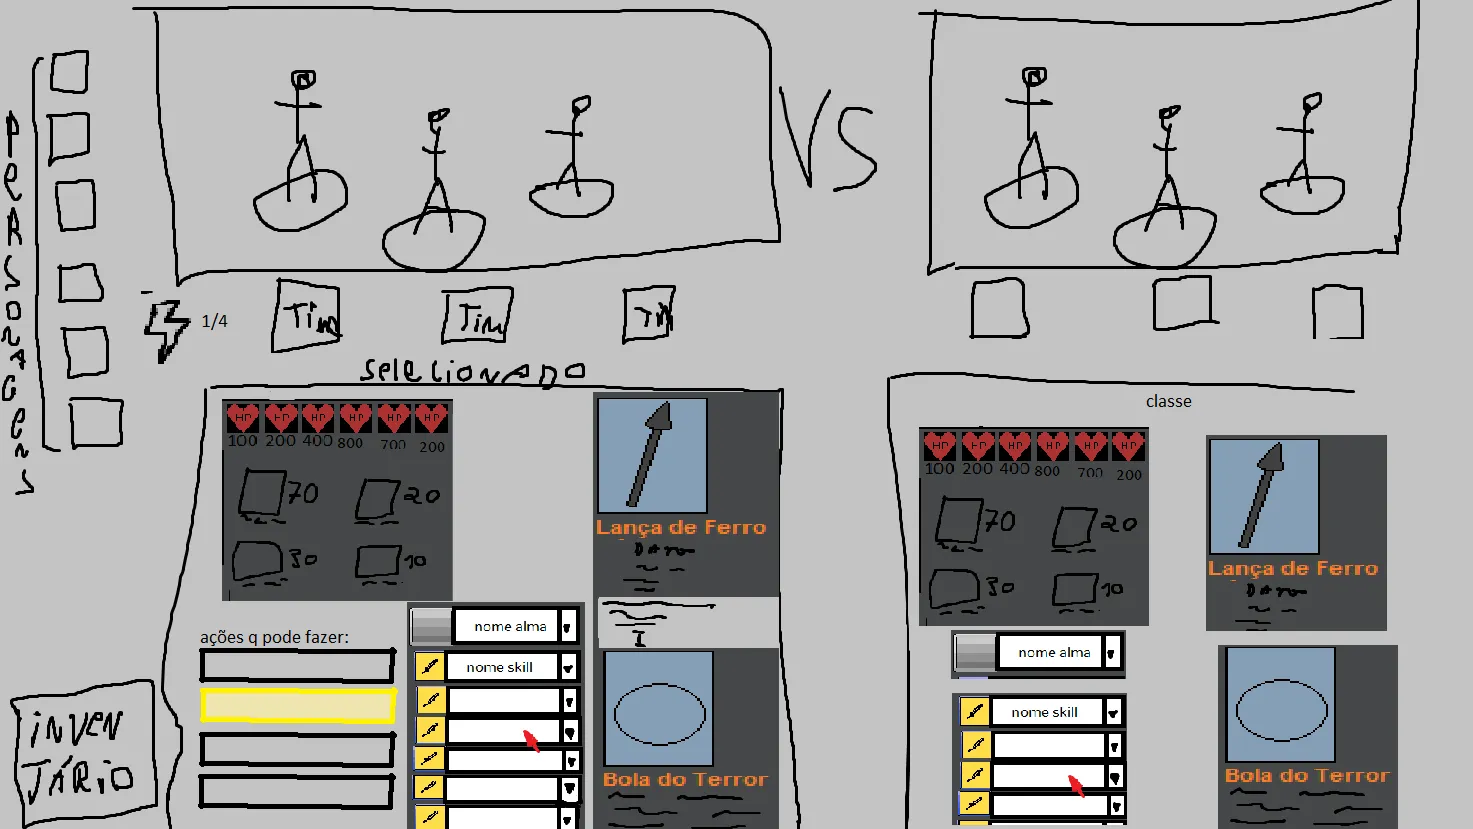 PERSONAGENS
VS
1/4
Tim
Tim
Tim
SELECIONADO
HP HP HP HP HP HP
100 200 400 800 700 200
70
20
30
10
Lança de Ferro
DANO
ações q pode fazer:
nome alma
nome skill
Bola do Terror
INVENTÁRIO
classe
HP HP HP HP HP HP
100 200 400 800 700 200
70
20
30
10
Lança de Ferro
DANO
nome alma
nome skill
Bola do Terror